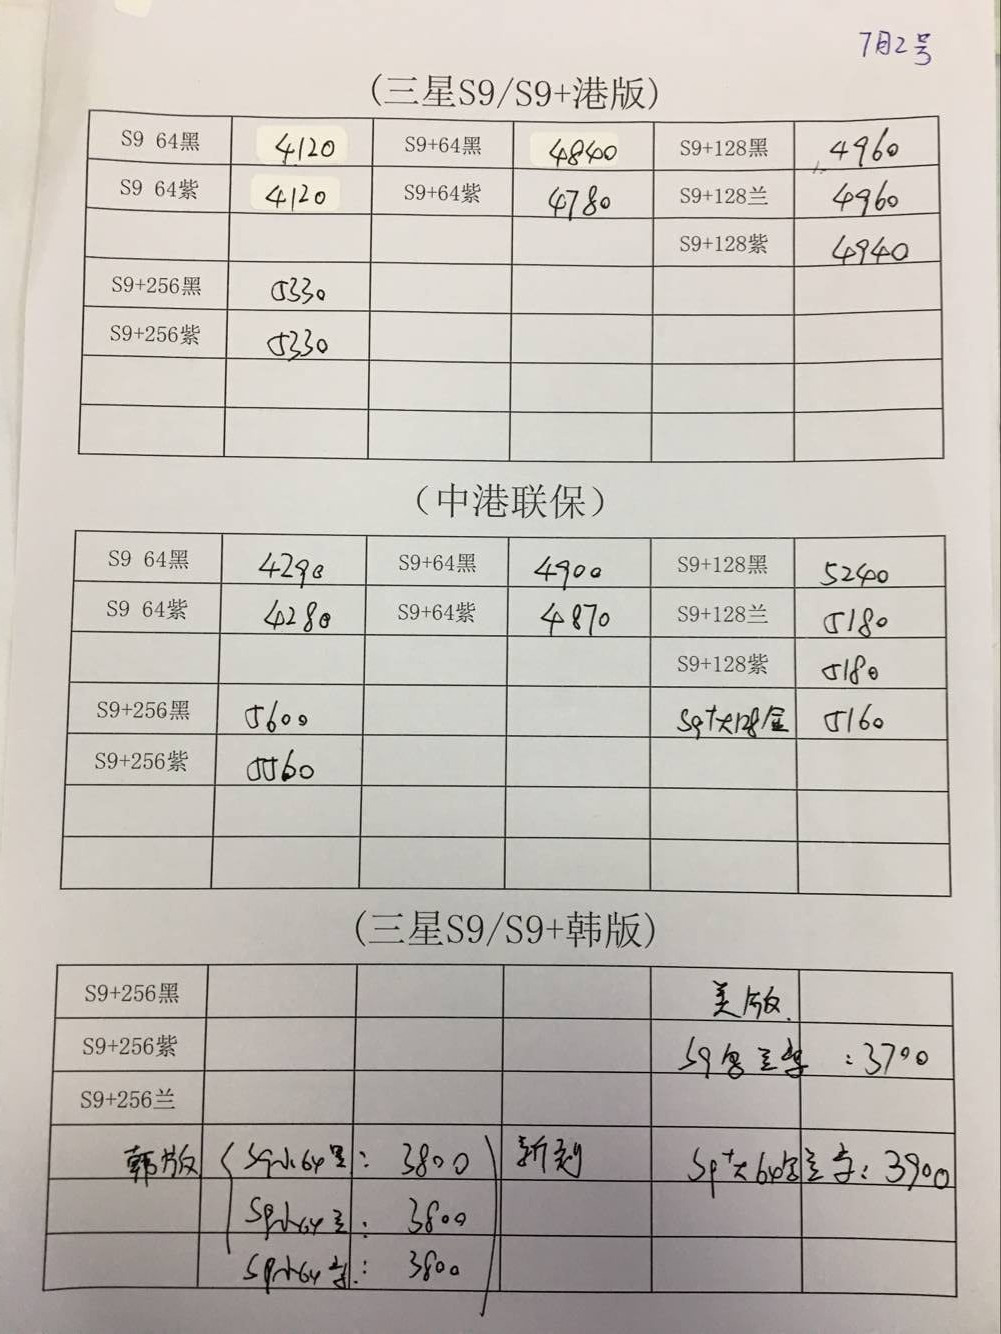 7月2号
(三星S9/S9+港版)
S9 64黑 4120 S9+64黑 4840 S9+128黑 4960
S9 64紫 4120 S9+64紫 4780 S9+128兰 4960
S9+128紫 4940
S9+256黑 5330
S9+256紫 5330
（中港联保）
S9 64黑 4290 S9+64黑 4900 S9+128黑 5240
S9 64紫 4280 S9+64紫 4870 S9+128兰 5180
S9+128紫 5180
S9+256黑 5600 S9+大128金 5160
S9+256紫 5560
(三星S9/S9+韩版)
S9+256黑 美版
S9+256紫 S9 :3700
S9+256兰
韩版 S9小64黑: 3800 S9+大64 :3900
S9小64兰: 3800
S9小64 : 3800